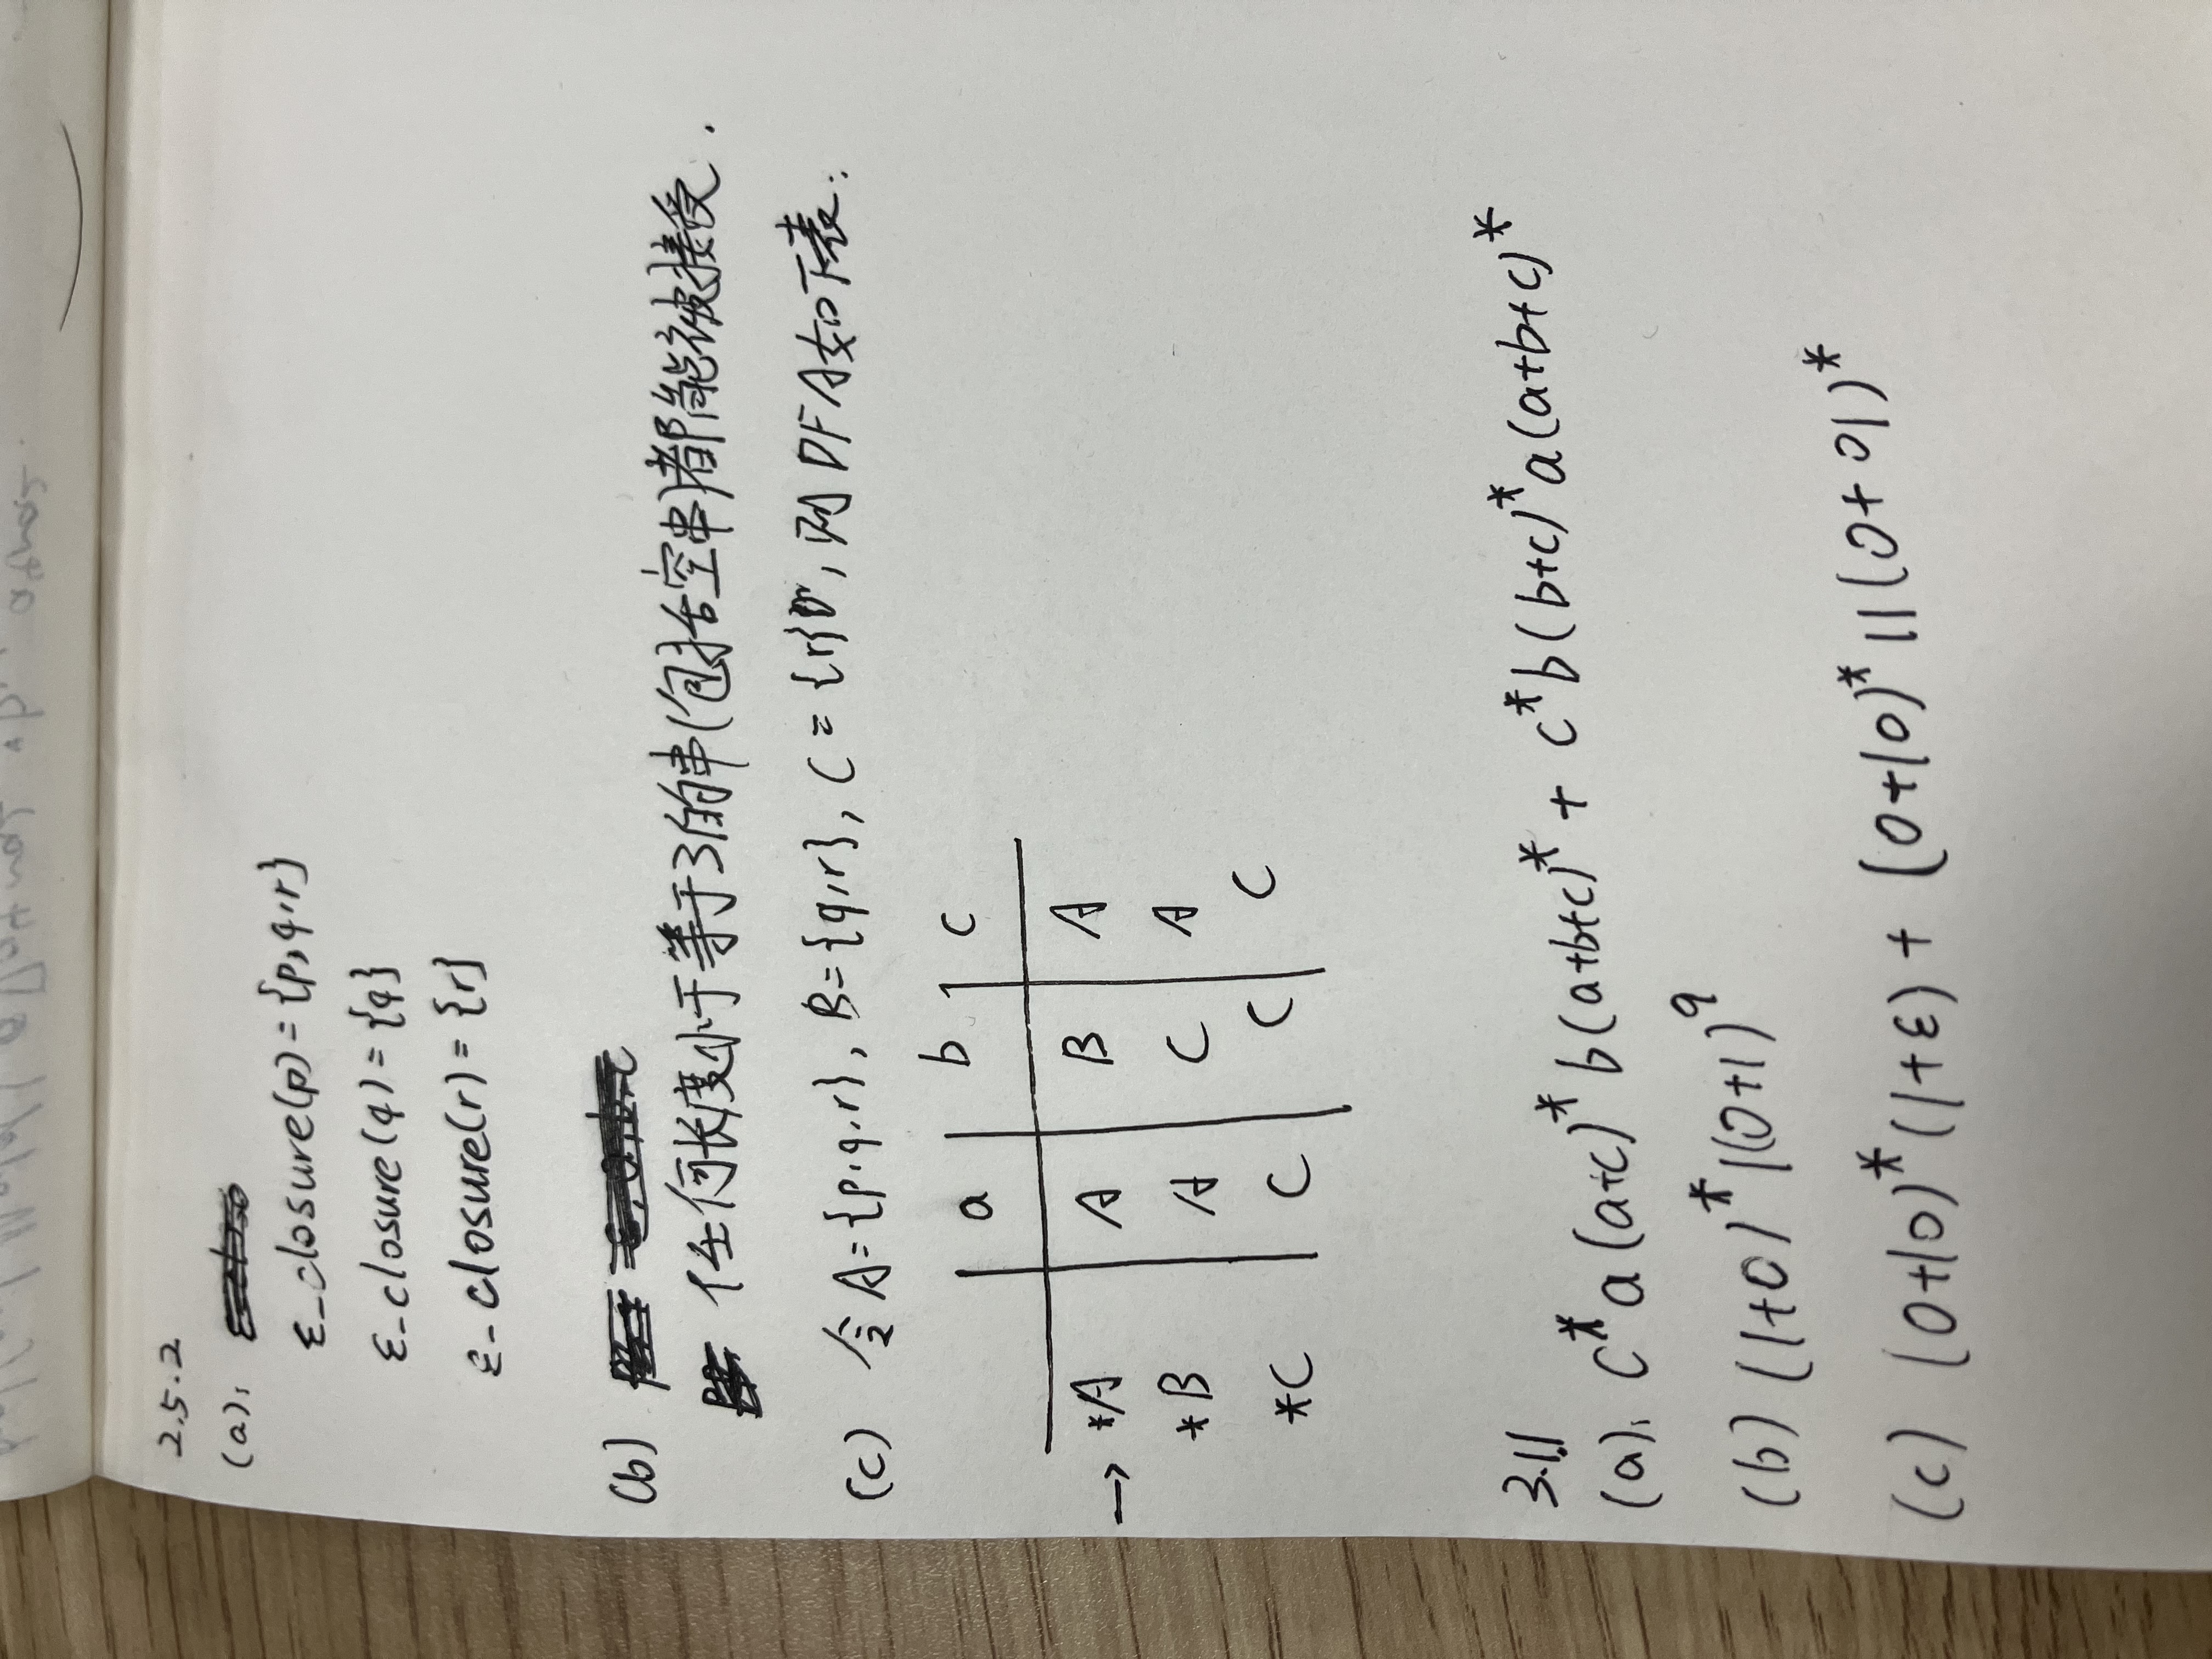 2.5.2
(a):
ε_closure(p) = {p,q,r}
ε_closure(q) = {q}
ε_closure(r) = {r}
(b)
任何长度小于等于3的串(包括空串)都能被接受.
(c) 令A={p,q,r}, B={q,r}, C={r}, 则DFA如下表:
a b c
→ *A A B A
*B A C A
*C C C C
3.1.1
(a): c*a(a+c)*b(a+b+c)* + c*b(b+c)*a(a+b+c)*
(b) (1+0)*1(0+1)⁹
(c) (0+10)*(1+ε) + (0+10)*11(0+01)*